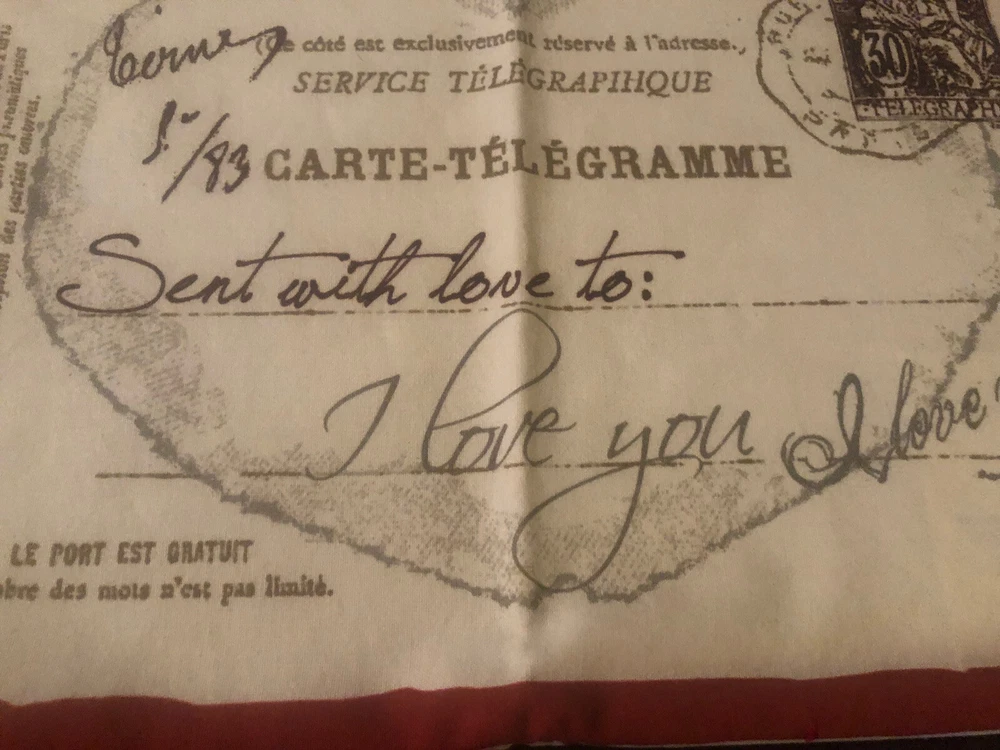 (Ce côté est exclusivement réservé à l'adresse.,
SERVICE TÉLÉGRAPIHQUE
30
TÉLÉGRAPH
/83 CARTE-TÉLÉGRAMME
Sent with love to:
I love you I love
LE PORT EST GRATUIT
bre des mots n'est pas limité.
des parties